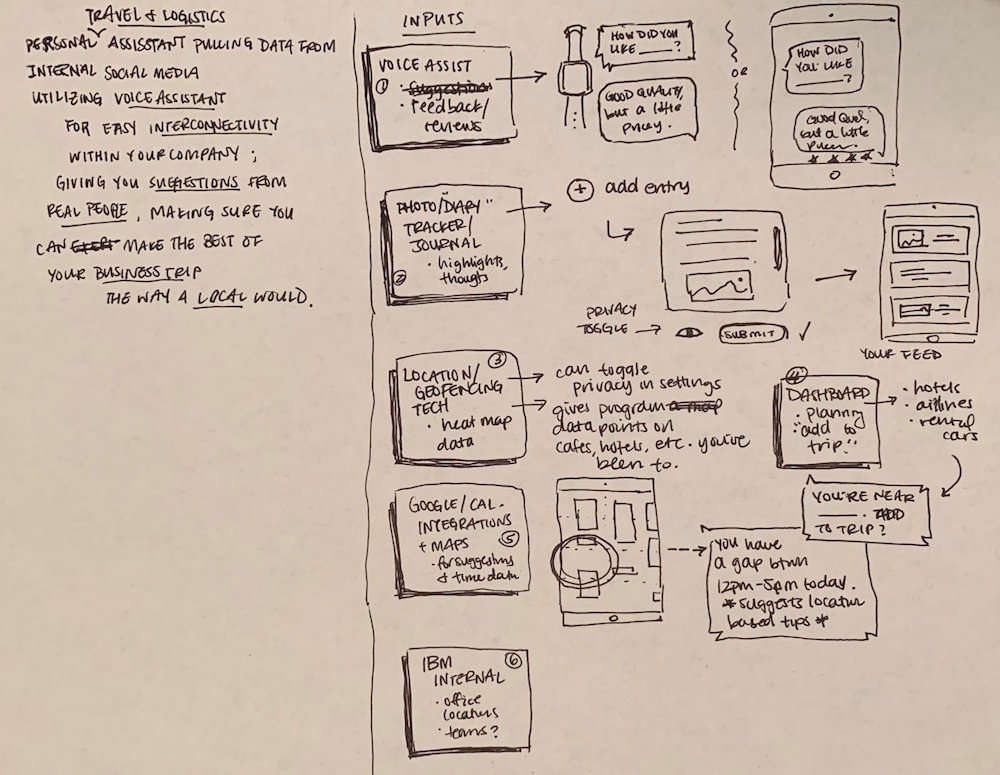 TRAVEL & LOGISTICS
PERSONAL ASSISSTANT PULLING DATA FROM
INTERNAL SOCIAL MEDIA
UTILIZING VOICE ASSISTANT
FOR EASY INTERCONNECTIVITY
WITHIN YOUR COMPANY ;
GIVING YOU SUGGESTIONS FROM
REAL PEOPLE, MAKING SURE YOU
CAN MAKE THE BEST OF
YOUR BUSINESS TRIP
THE WAY A LOCAL WOULD.
INPUTS
VOICE ASSIST
① · Suggestions
· feedback/
reviews
HOW DID YOU
LIKE ____ ?
GOOD QUALITY,
but a little
pricey.
OR
HOW DID
YOU LIKE
____?
Good Qual,
but a little
PHOTO/"DIARY"
TRACKER/
JOURNAL
· highlights,
thougts
②
+ add entry
PRIVACY
TOGGLE →
SUBMIT
YOUR FEED
③
LOCATION/
GEOFENCING
TECH
· heat map
data
can toggle
privacy in settings
gives program a map
data points on
cafes, hotels, etc. you've
been to.
④
DASHBOARD
· planning
"add to
trip"
· hotels
· airlines
· rental
cars
YOU'RE NEAR
____. ADD
TO TRIP?
GOOGLE/CAL.
INTEGRATIONS
+ MAPS ⑤
· for suggestions
& time data
you have
a gap btwn
12pm-5pm today.
*suggests location
based tips*
IBM ⑥
INTERNAL
· office
locations
· teams?